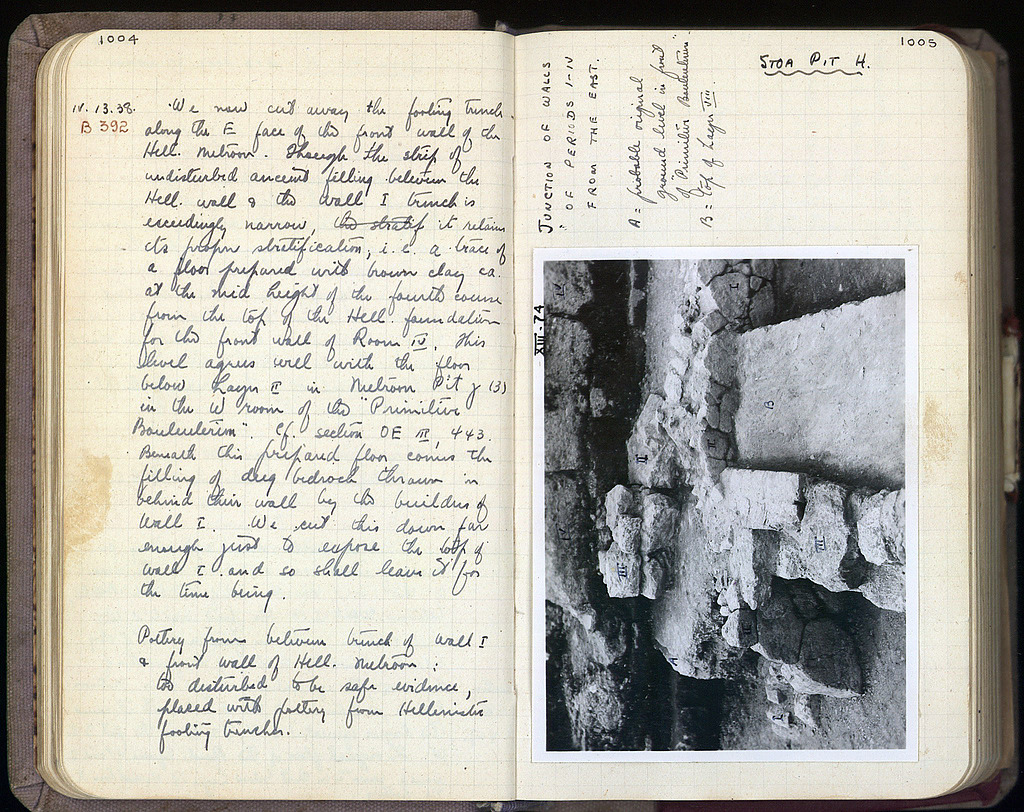 1004
IV. 13.38.
B 392
We now cut away the footing trench
along the E face of the front wall of the
Hell. Metroon. Though the strip of
undisturbed ancient filling between the
Hell. wall & the Wall I trench is
exceedingly narrow, the stratif it retains
its proper stratification, i.e. a trace of
a floor prepared with brown clay ca.
at the mid height of the fourth course
from the top of the Hell. foundation
for the front wall of Room IV. This
level agrees well with the floor
below Layer II in Metroon Pit (3)
in the W room of the "Primitive
Bouleuterion". Cf. section OE III, 443.
Beneath this prepared floor comes the
filling of dug bedrock thrown in
behind their wall by the builders of
Wall I. We cut this down far
enough just to expose the top of
Wall I and so shall leave it for
the time being.
Pottery from between trench of Wall I
& front wall of Hell. Metroon:
too disturbed to be safe evidence,
placed with pottery from Hellenistic
footing trenches.
1005
STOA PIT H.
JUNCTION OF WALLS
OF PERIODS I-IV
FROM THE EAST.
A = probable original
ground level in front
of Primitive Bouleuterion.
B = top of Layer VIII
XIII-74
IV
I
II
B
II
IV
III
III
II
A
I